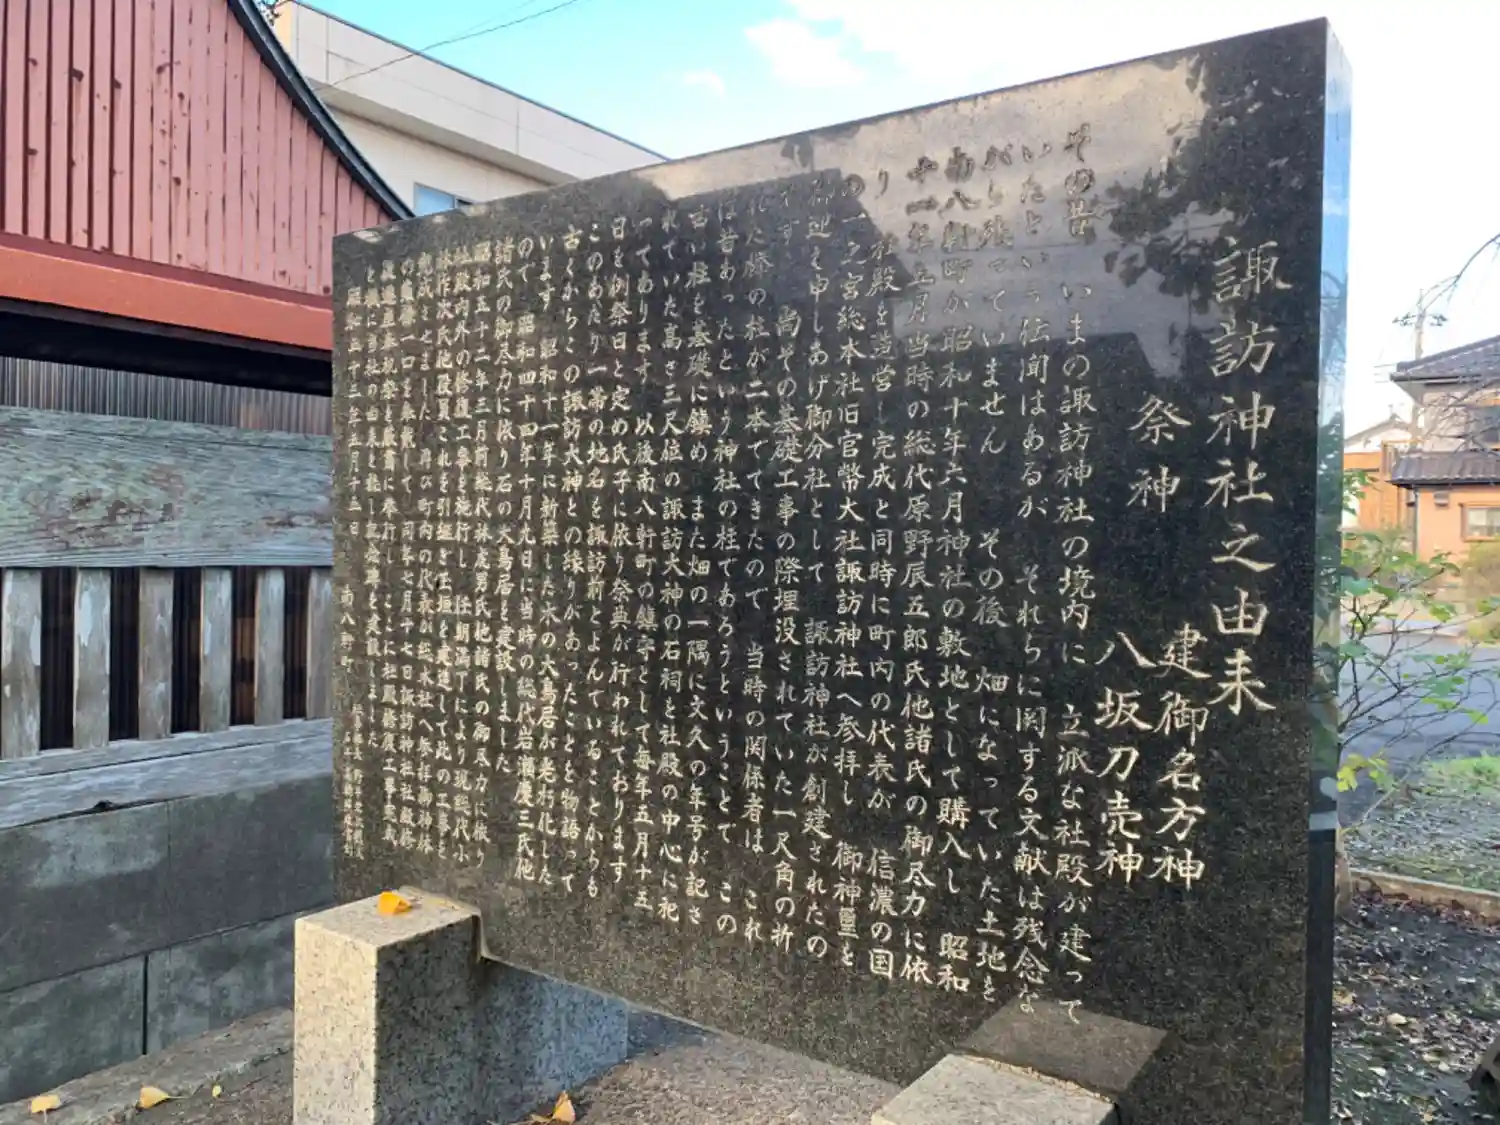 諏訪神社之由来
祭神
建御名方神
八坂刀売神
その昔 いまの諏訪神社の境内に 立派な社殿が建って
いたという伝聞はあるが それらに関する文献は残念な
がら残っていません その後 畑になっていた土地を
南八軒町が昭和十年六月神社の敷地として購入し 昭和
十一年五月当時の総代原野辰五郎氏他諸氏の御尽力に依
り 社殿を造営し完成と同時に町内の代表が 信濃の国
の一之宮総本社旧官幣大社諏訪神社へ参拝し 御神璽を
申しあげ御分社として 諏訪神社が創建されたの
です 尚その基礎工事の際埋没されていた一尺角の折
れた欅の柱が二本でてきたので 当時の関係者は これ
は昔あったという神社の柱であろうということで この
古い柱を基礎に鎮め また畑の一隅に文久の年号が記さ
れていた高さ三尺位の諏訪大神の石祠を社殿の中心に祀
ってあります 以後南八軒町の鎮守として毎年五月十五
日を例祭日と定め氏子に依り祭典が行われております
このあたり一帯の地名を諏訪前とよんでいることからも
古くからこの諏訪大神との縁りがあったことを物語って
います 昭和十一年に新築した木の大鳥居が老朽化した
ので 昭和四十四年十月九日に当時の総代岩瀬慶三氏他
諸氏の御尽力に依り石の大鳥居を建設しました
昭和五十二年三月前総代林虎男氏他諸氏の御尽力に依り
社殿内外の修復工事を施行し 任期満了により現総代小
林作次氏他役員これを引継ぎ玉垣を建造して此の工事を
完成させました 再び町内の代表が総本社へ参拝御神体
同年七月十七日諏訪神社社殿修
昭和五十三年五月十五日 南八軒町